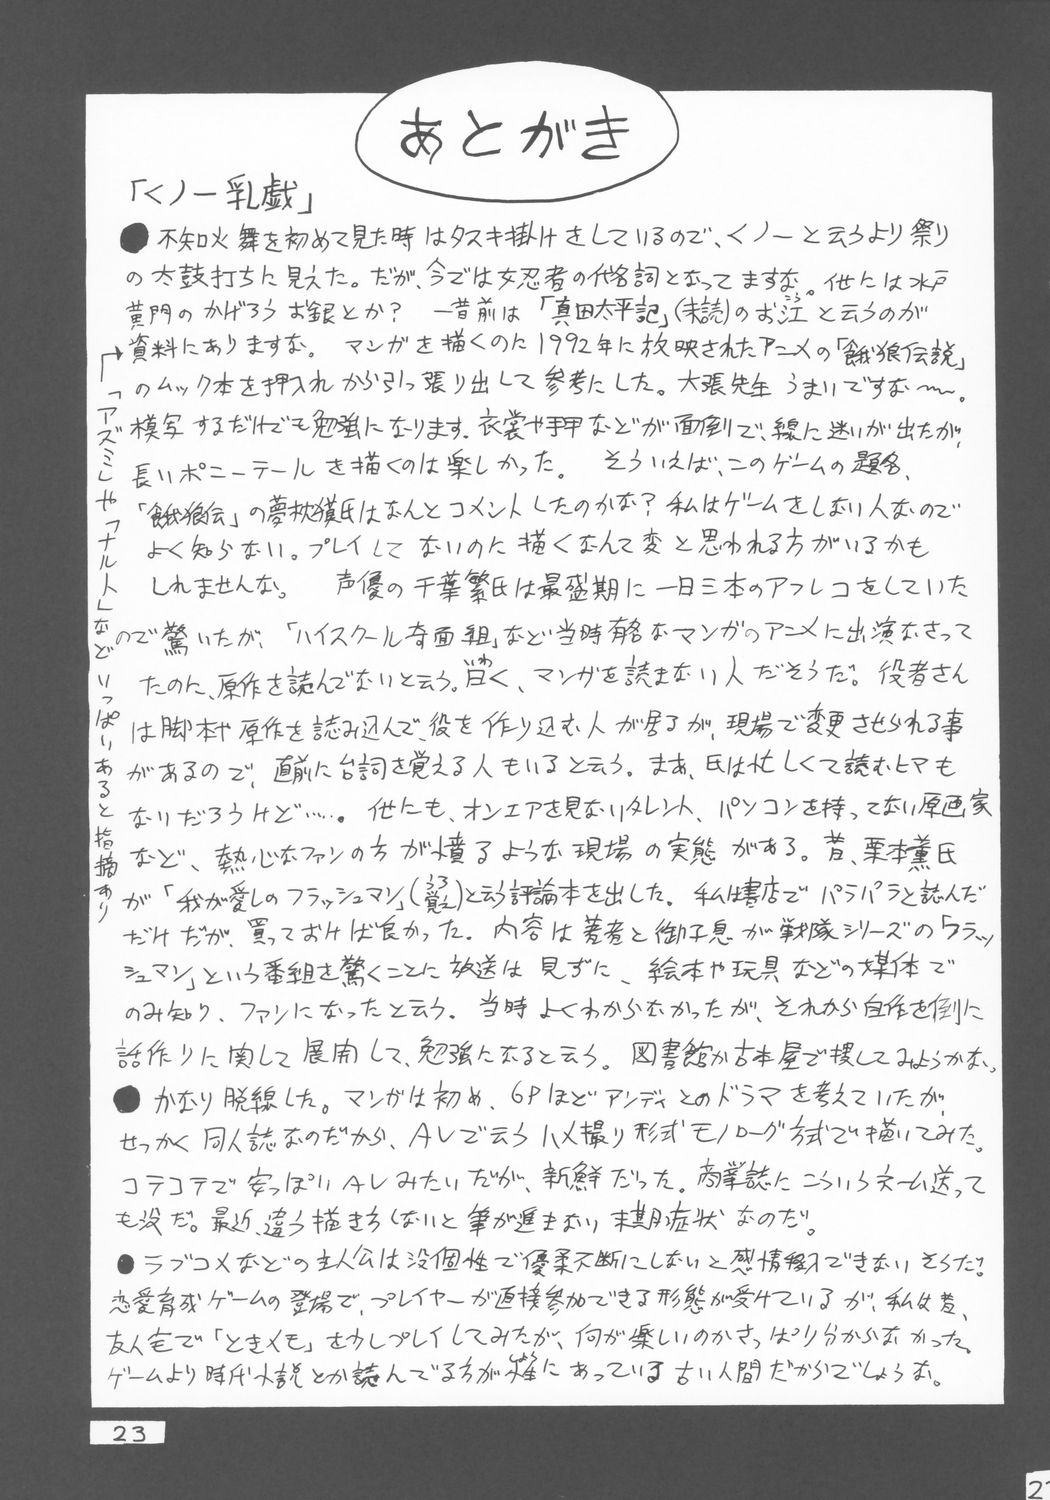 あとがき
「くノ一乳戯」
●不知火舞を初めて見た時はタスキ掛けをしているので、くノ一と云うより祭り
の太鼓打ちに見えた。だが、今では女忍者の代名詞となってますな。他には水戸
黄門のかげろうお銀とか？ 一昔前は「真田太平記」(未読)のお江と云うのが
こう
資料にありますな。 マンガを描くのに1992年に放映されたアニメの「餓狼伝説」
のムック本を押入れから引っ張り出して参考にした。大張先生うまいですな〜〜。
模写するだけでも勉強になります。衣裳や手甲などが面倒で、線に迷いが出たが、
長いポニーテールを描くのは楽しかった。 そういえば、このゲームの題名、
「餓狼伝」の夢枕獏氏はなんとコメントしたのかな？私はゲームをしない人なので
よく知らない。プレイしてないのに描くなんて変と思われる方がいるかも
しれませんな。 声優の千葉繁氏は最盛期に一日三本のアフレコをしていた
ので驚いたが、「ハイスクール奇面組」など当時有名なマンガのアニメに出演なさって
たのに、原作を読んでないと云う。曰く、マンガを読まない人だそうだ。役者さん
いわ
は脚本や原作を読み込んで、役を作り込む人が居るが、現場で変更させられる事
があるので、直前に台詞を覚える人もいると云う。まあ、氏は忙しくて読むヒマも
ないだろうけど……。他にも、オンエアを見ないタレント、パソコンを持ってない原画家
など、熱心なファンの方が憤るような現場の実態がある。昔、栗本薫氏
が「我が愛しのフラッシュマン」(うろ覚え)と云う評論本を出した。私は書店でパラパラと読んだ
だけだが、買っておけば良かった。内容は著者と御子息が戦隊シリーズの「フラッ
シュマン」という番組を驚くことに放送は見ずに、絵本や玩具などの媒体で
のみ知り、ファンになったと云う。当時よくわからなかったが、それから自作を例に
話作りに関して展開して、勉強になると云う。図書館か古本屋で捜してみようかな。
●かなり脱線した。マンガは初め、6Pほどアンディとのドラマを考えていたが、
せっかく同人誌なのだから、AVで云うハメ撮り形式モノローグ方式で描いてみた。
コテコテで安っぽいAVみたいだが、新鮮だった。商業誌にこういうネーム送って
も没だ。最近、違う描き方しないと筆が進まない末期症状なのだ。
●ラブコメなどの主人公は没個性で優柔不断にしないと感情移入できないそうだ。
恋愛育成ゲームの登場で、プレイヤーが直接参加できる形態が受けているが、私は昔、
友人宅で「ときメモ」を少しプレイしてみたが、何が楽しいのかさっぱり分からなかった。
ゲームより時代小説とか読んでる方が性にあっている古い人間だからでしょうな。
しょう
「アズミ」や「ナルト」などいっぱいあると指摘あり
23